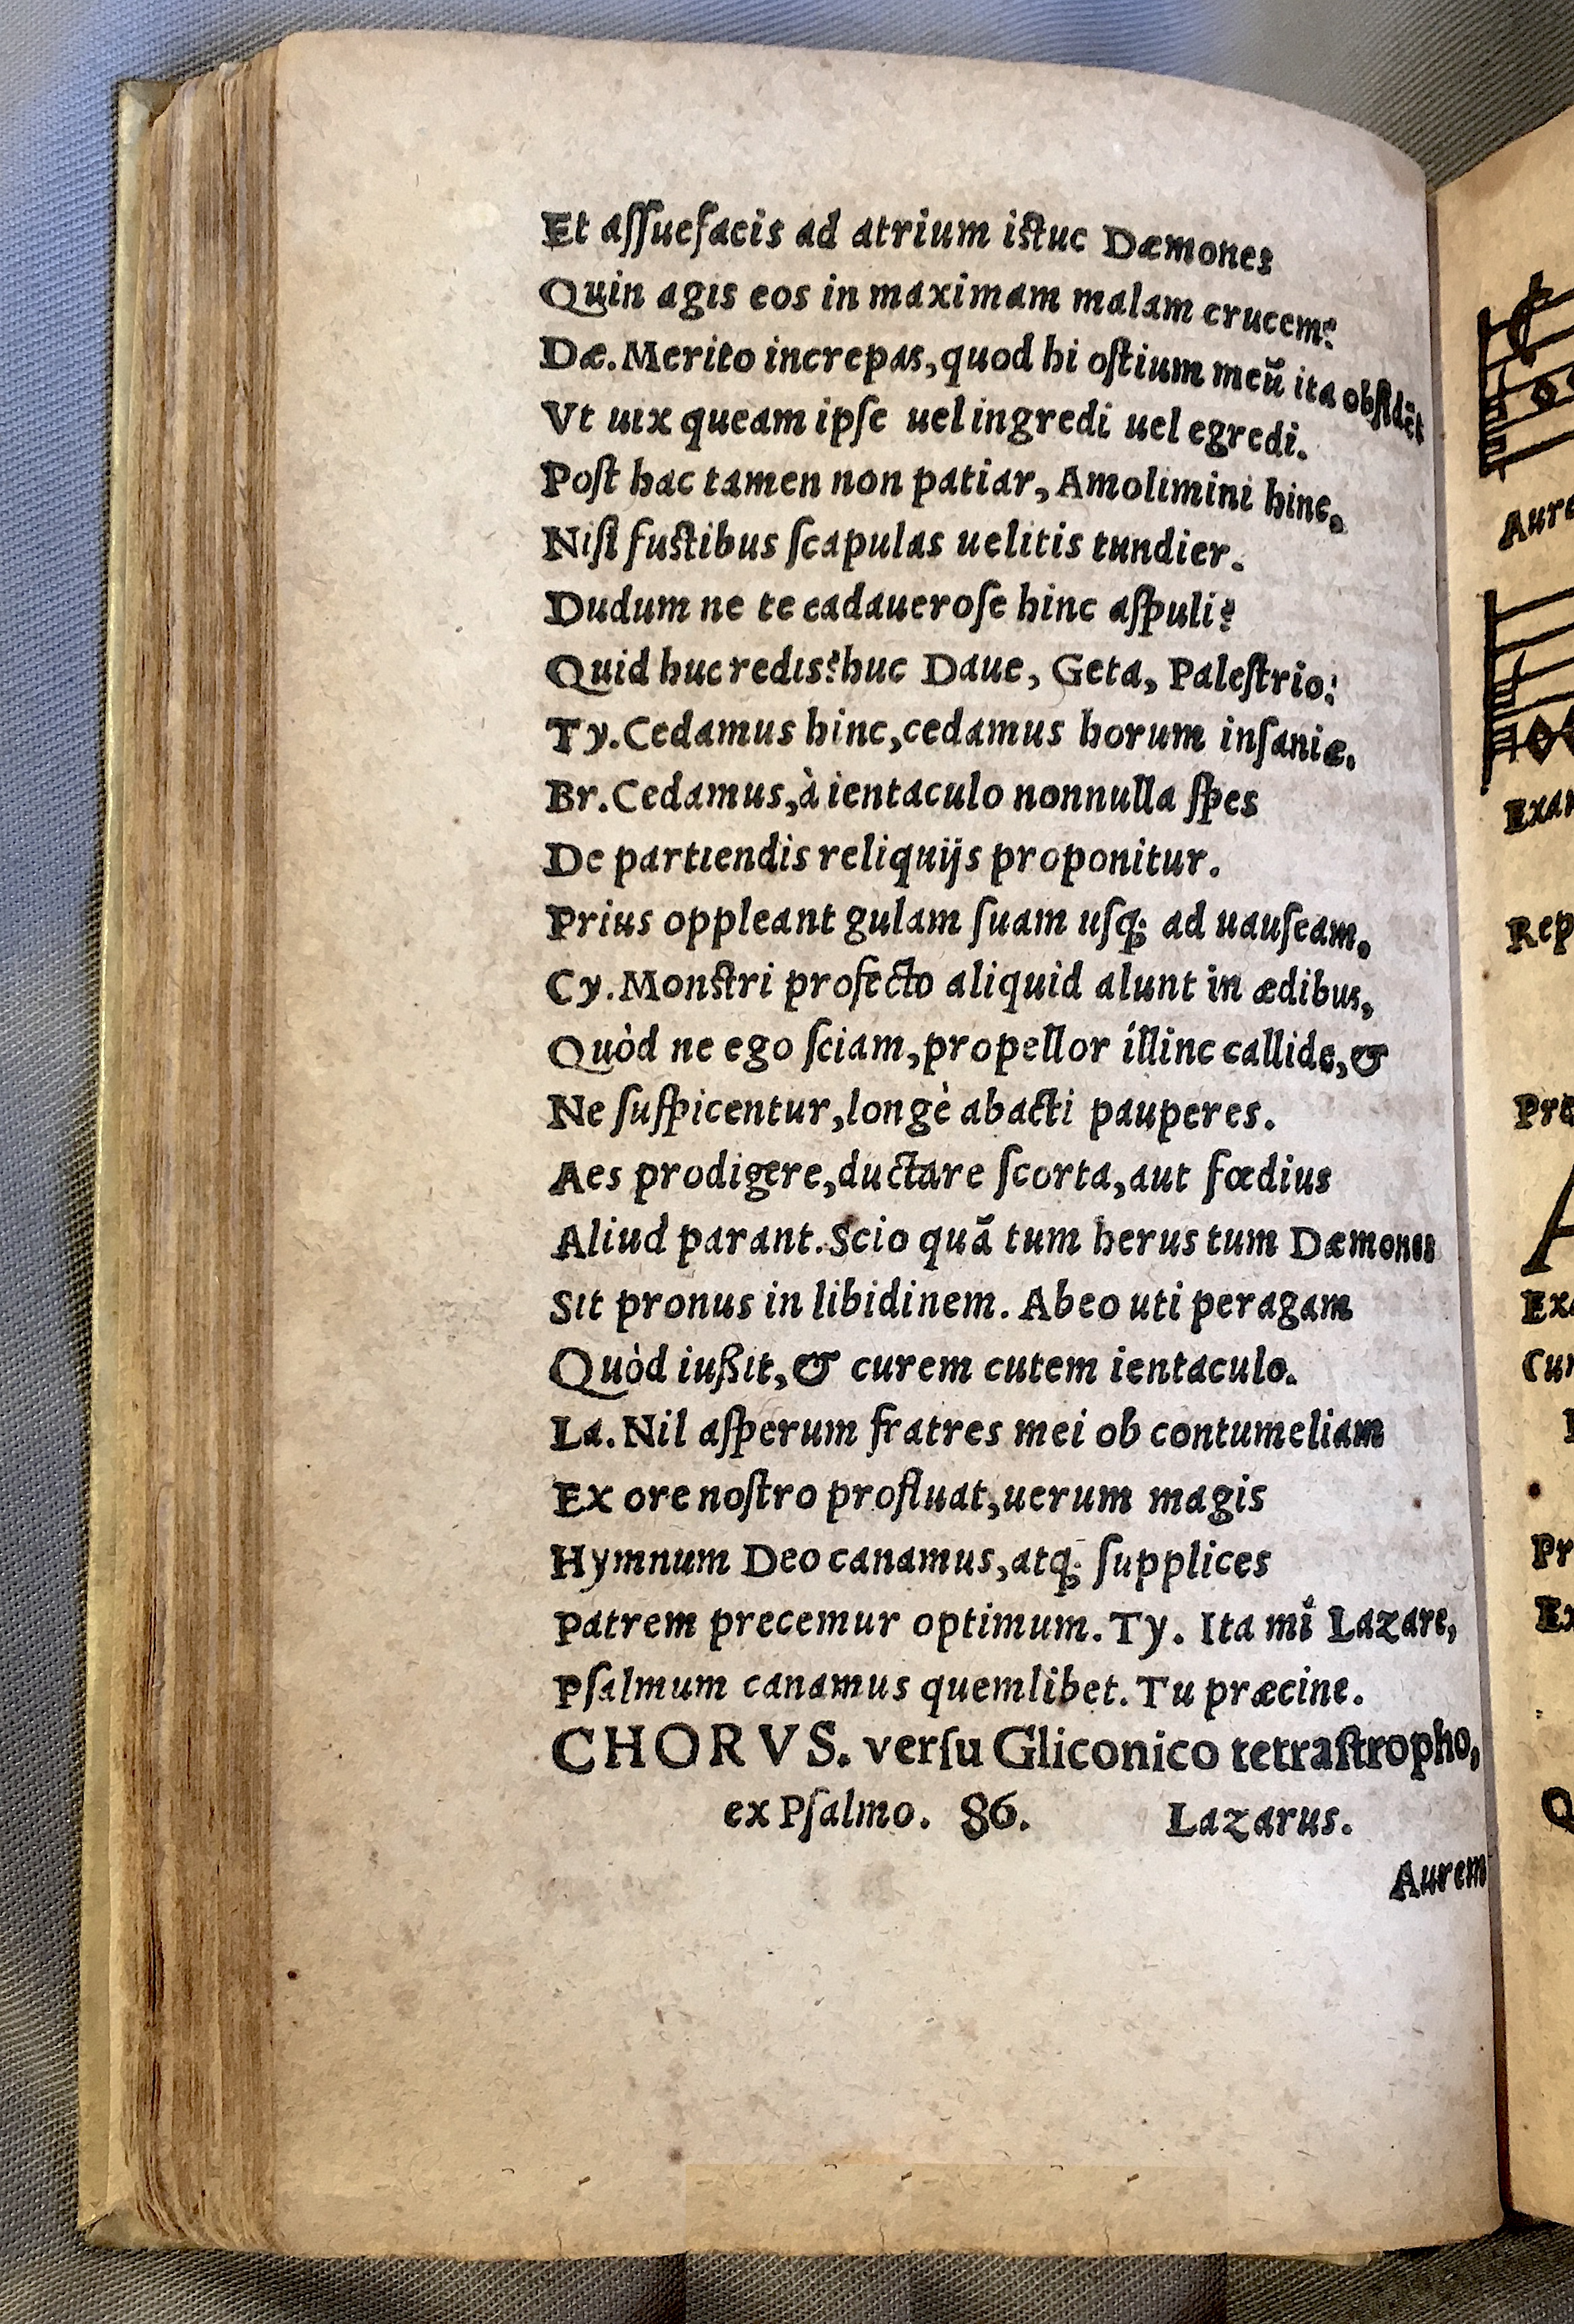 Et aſſuefacis ad atrium iſtuc Dæmones
Quin agis eos in maximam malam crucem?
Dæ. Merito increpas, quod hi oſtium meũ ita obſidẽt
Vt uix queam ipſe uel ingredi uel egredi.
Poſt hac tamen non patiar, Amolimini hinc.
Niſi fuſtibus ſcapulas uelitis tundier.
Dudum ne te cadaueroſe hinc aſpuli?
Quid huc redis? huc Daue, Geta, Paleſtrio:
Ty. Cedamus hinc, cedamus horum inſaniæ.
Br. Cedamus, à ientaculo nonnulla ſpes
De partiendis reliquijs proponitur.
Prius oppleant gulam ſuam uſq; ad uauſeam.
Cy. Monſtri profecto aliquid alunt in ædibus,
Quòd ne ego ſciam, propellor illinc callide, &
Ne ſuſpicentur, longè abacti pauperes.
Aes prodigere, ductare ſcorta, aut fœdius
Aliud parant. Scio quã tum herus tum Dæmones
Sit pronus in libidinem. Abeo uti peragam
Quòd iußit, & curem cutem ientaculo.
La. Nil aſperum fratres mei ob contumeliam
Ex ore noſtro profluat, uerum magis
Hymnum Deo canamus, atq; ſupplices
Patrem precemur optimum. Ty. Ita mi Lazare,
Pſalmum canamus quemlibet. Tu præcine.
CHORVS. verſu Gliconico tetraſtropho,
ex Pſalmo. 86. Lazarus.
Aurem